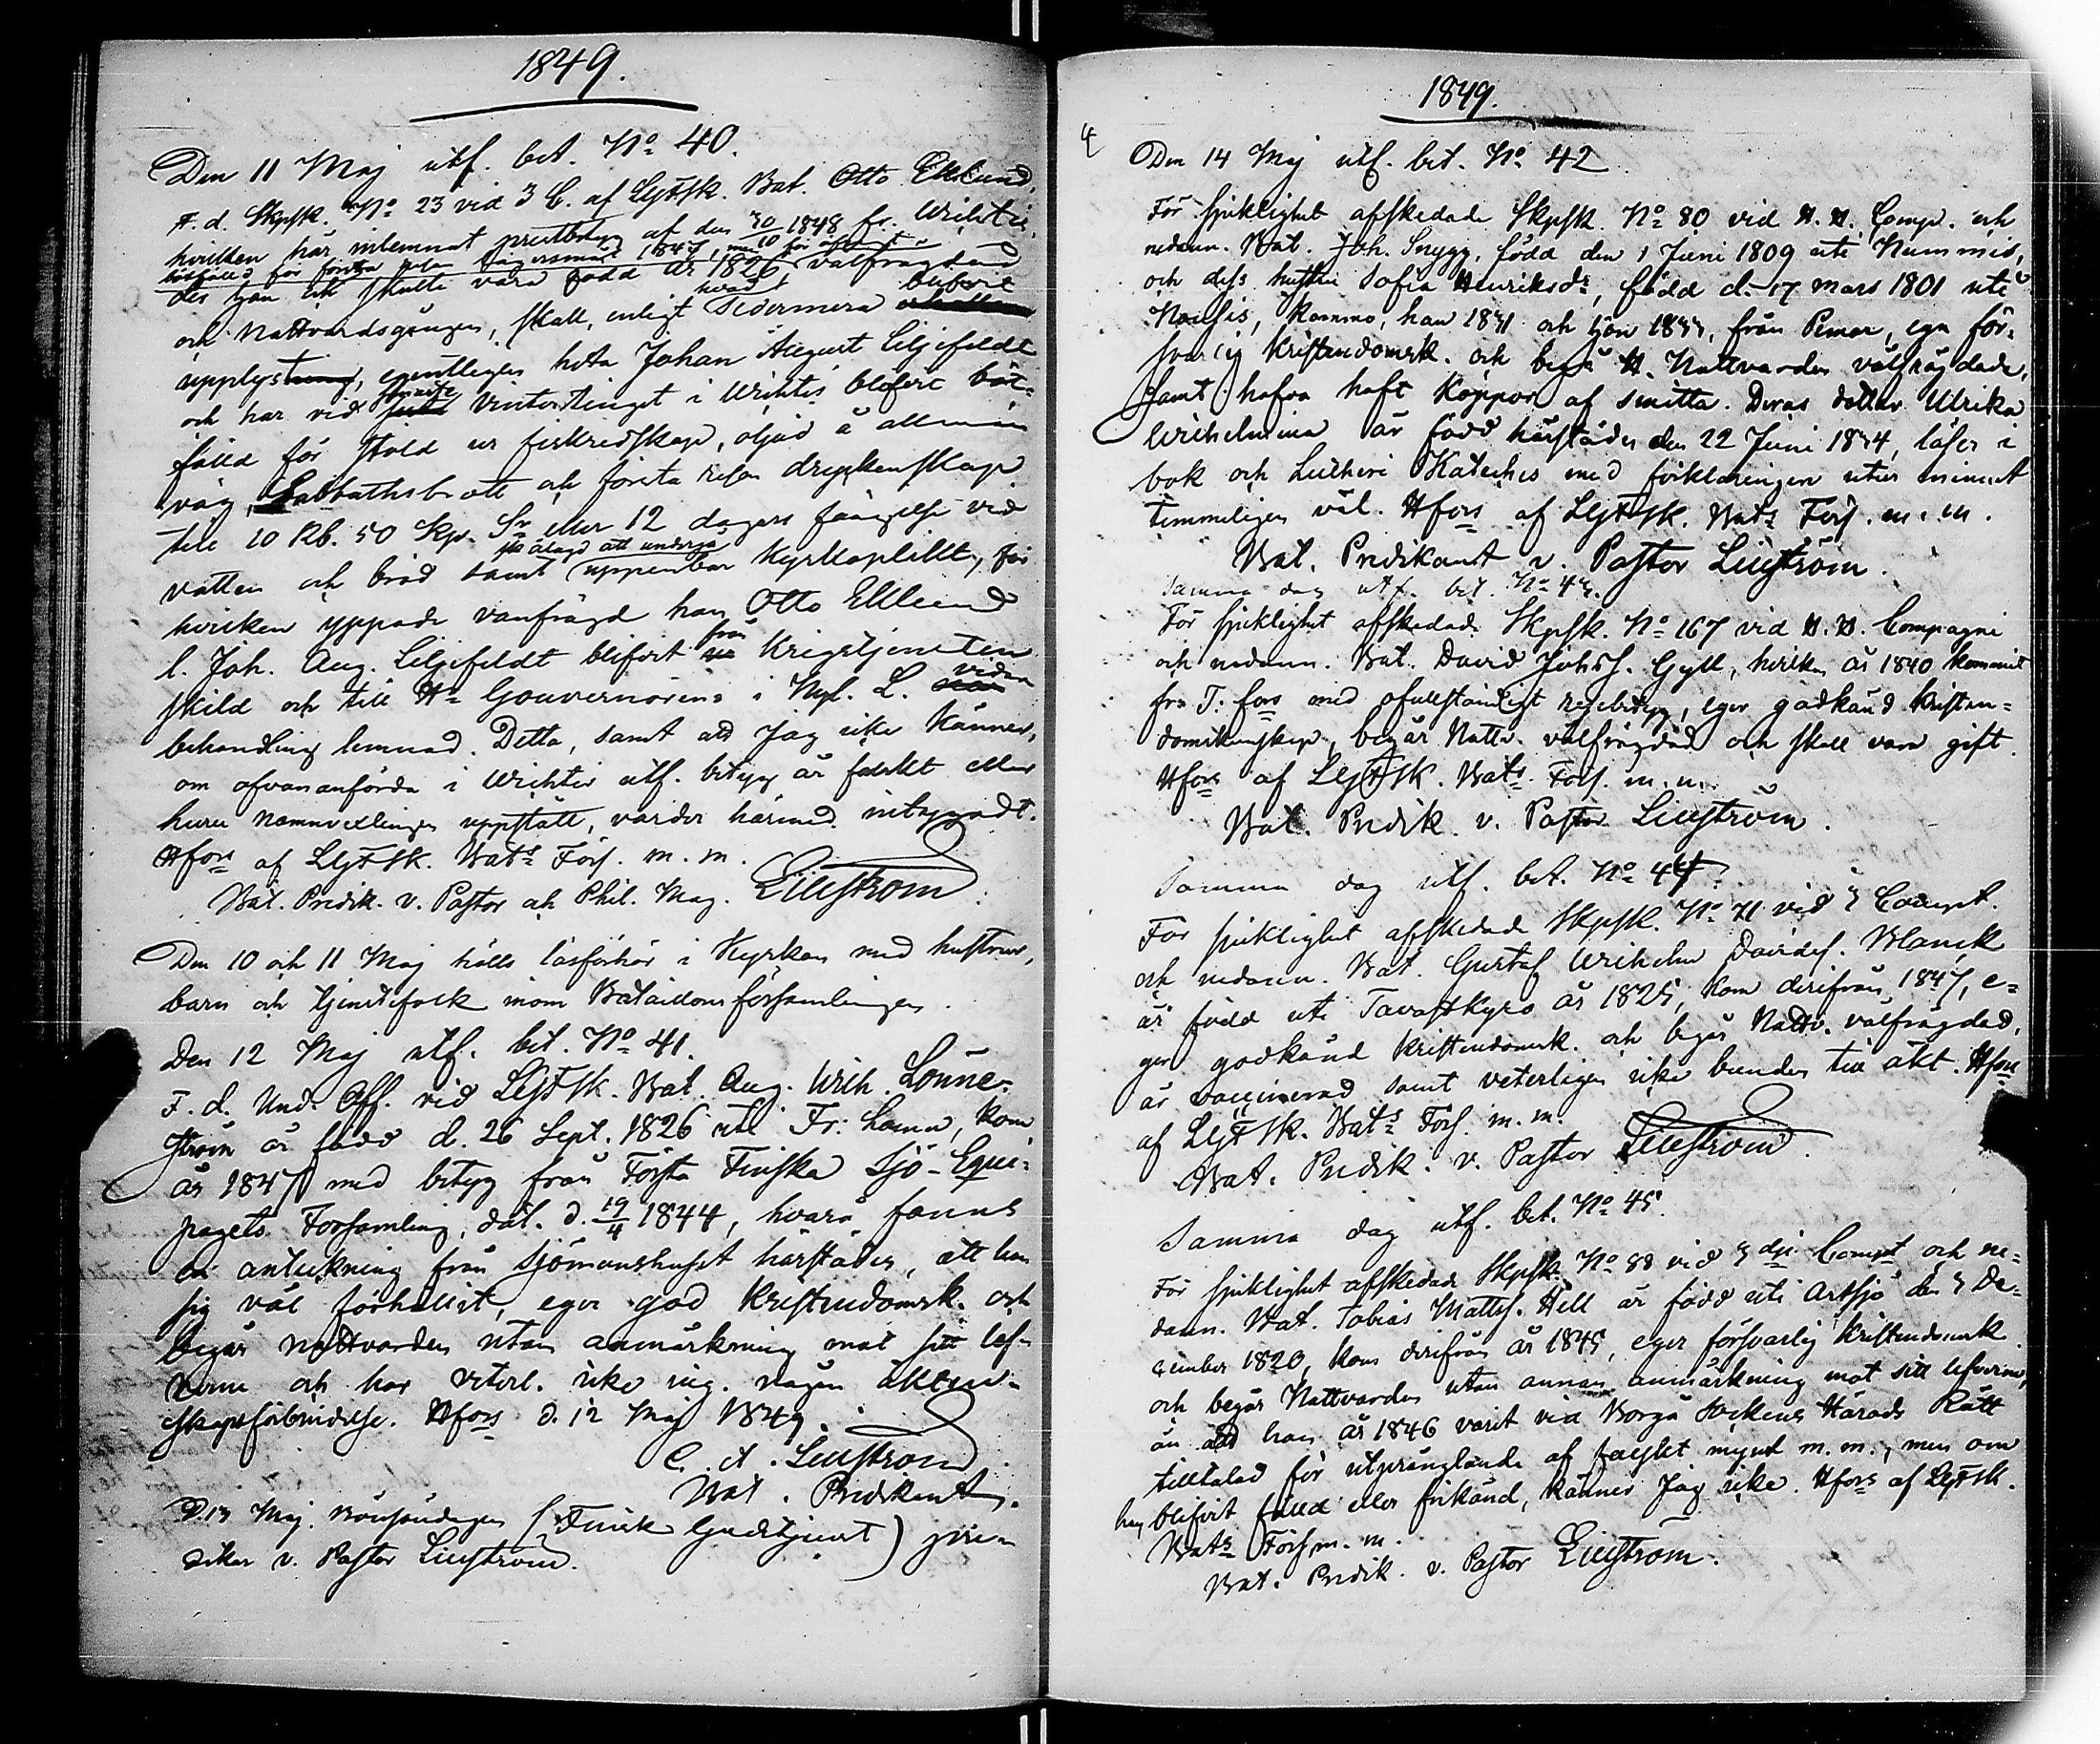 1849.
Den 11 Maj utf. bet. No 40.
F. d. Skpsk. No 23 vid 3 C. af LGFSk. Bat. Otto Eklund,
hvilken här inlemnat prestbetyg af den 30/10 1848 fr. Wichtis,
för första resan 1847,
det han ock skulle vara född år 1826 välfrägdad
och Nattvardsgången, skall, enligt hvad Sedermera
upplyst, egentligen heta Johan August Liljefeldt
och har vid Vintertinget i Wichtis blifvit böt-
fälld för stöld ur fiskredskap, oljud å allmän
väg, Sabbathsbrott och första resan dryckenskap
till 10 Rb. 50 Kop. Sr eller 12 dagars fängelse vid
vatten och bröd samt att undergå uppenbar Kyrkoplikt, för
hvilken yppade vanfrägd han Otto Eklund
l. Joh. Aug. Liljefeldt blifvit från Krigstjensten
skild och till Hr Gouvernörens i Nyl. L. vidare
behandling lemnad. Detta, samt att Jag icke känner,
om ofvananförda i Wichtis utf. betyg är falskt eller
huru namnvexlingen uppstått, varder härmed intygadt.
Hfors af LGFSk. Bats Förs. m. m.
Bat. Predik. v. Pastor och Phil. Mag. Lillström
Den 10 och 11 Maj hölls läsförhör i Kyrkan med hustrur,
barn och tjenstefolk inom Bataillons församlingen.
Den 12 Maj utf. bet. No 41.
F. d. Und. Off. vid LGFSk. Bat. Aug. Wilh. Lönne-
ström är född d. 26 Sept. 1826 uti Fr: hamn, kom
år 1847 med betyg från Första Finska Sjö-Equi-
pagets Församling, dat. d. 19/4 1844, hvarå fanns
en anteckning från Sjömanshuset härstädes, att han
sig väl förhållit, eger god Kristendomsk. och
begår Nattvarden utan anmärkning mot sitt lef-
verne och har veterl. icke ing. någon äkten-
skapsförbindelse. Hfors d. 12 Maj 1849.
C. A. Lillström
Bat. Predikant.
D. 13 Maj Bönsöndagen (Finsk Gudstjenst) predi-
dikar v. Pastor Lillström.
1849.
Den 14 Maj utf. bet. No 42
För sjuklighet afskedade Skpsk. No 80 vid H. H. Comp. och
nedann. Bat. Joh. Snygg, född den 1 Juni 1809 uti Nummis,
och dess hustru Sofia Henriksdr, född d. 17 Mars 1801 uti
Nousis, kommo, han 1831 och hon 1833, från Pemar, ega för-
svarlig Kristendomsk. och begå H. Nattvarden välfrägdade,
samt hafva haft koppor af smitta. Deras dotter Ulrika
Wilhelmina är född härstädes den 22 Juni 1834, läser i
bok och Lutheri Kateches med förklaringen utur minnet
temmeligen väl. Hfors af LGFSk. Bats Förs. m. m.
Bat. Predikant v. Pastor Lillström.
Samma dag utf. bet. No 43.
För sjuklighet afskedade Skpsk. No 167 vid H. H. Compagni
och nedann. Bat. David Johss. Gyll, hvilken år 1840 kommit
frn T: fors med ofullständigt resebetyg, eger godkänd Kristen-
domskunskap, begår Nattv. välfrägdad och skall vara gift.
Hfors af LGFSk. Bats Förs. m. m.
Bat. Predik. v. Pastor Lillström.
Samma dag utf. bet. No 44.
För sjuklighet afskedade Skpsk. No 71 vid 3 Compt.
och nedann. Bat. Gustaf Wilhelm Davids. Blanck
är född uti Tavastkyro år 1825, kom derifrån 1847, e-
ger godkänd Kristendomsk. och begår Nattv. välfrägdad,
är vaccinerad samt veterligen icke bunden till äkt. Hfors
af LGFSk. Bats Förs. m. m.
Bat. Predik. v. Pastor Lillström.
Samma dag utf. bet. No 45.
För sjuklighet afskedade Skpsk. No 88 vid 3 dje Compt och ne-
dann. Bat. Tobias Matts. Hell är född uti Artsjö den 3 De-
cember 1820, kom derifrån år 1845, eger försvarlig Kristendomsk.
och begår Nattvarden utan annan anmärkning mot sitt lefverne,
än att han år 1846 varit vid Borgå Sockens Härads Rätt
tilltalad för utprånglande af falskt mynt m. m., men om
han blifvit fälld eller frikänd, känner Jag icke. Hfors af LGFSk.
Bats Förs. m. m.
Bat. Predik. v. Pastor Lillström.